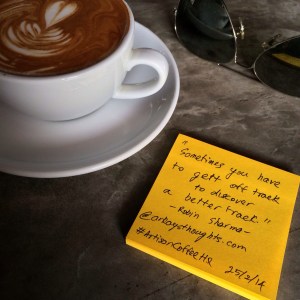 "Sometimes you have
to gett off track
to discover
a better track."
- Robin Sharma -
@arkaysthoughts.com
#ArtisanCoffeeHQ
25/2/14